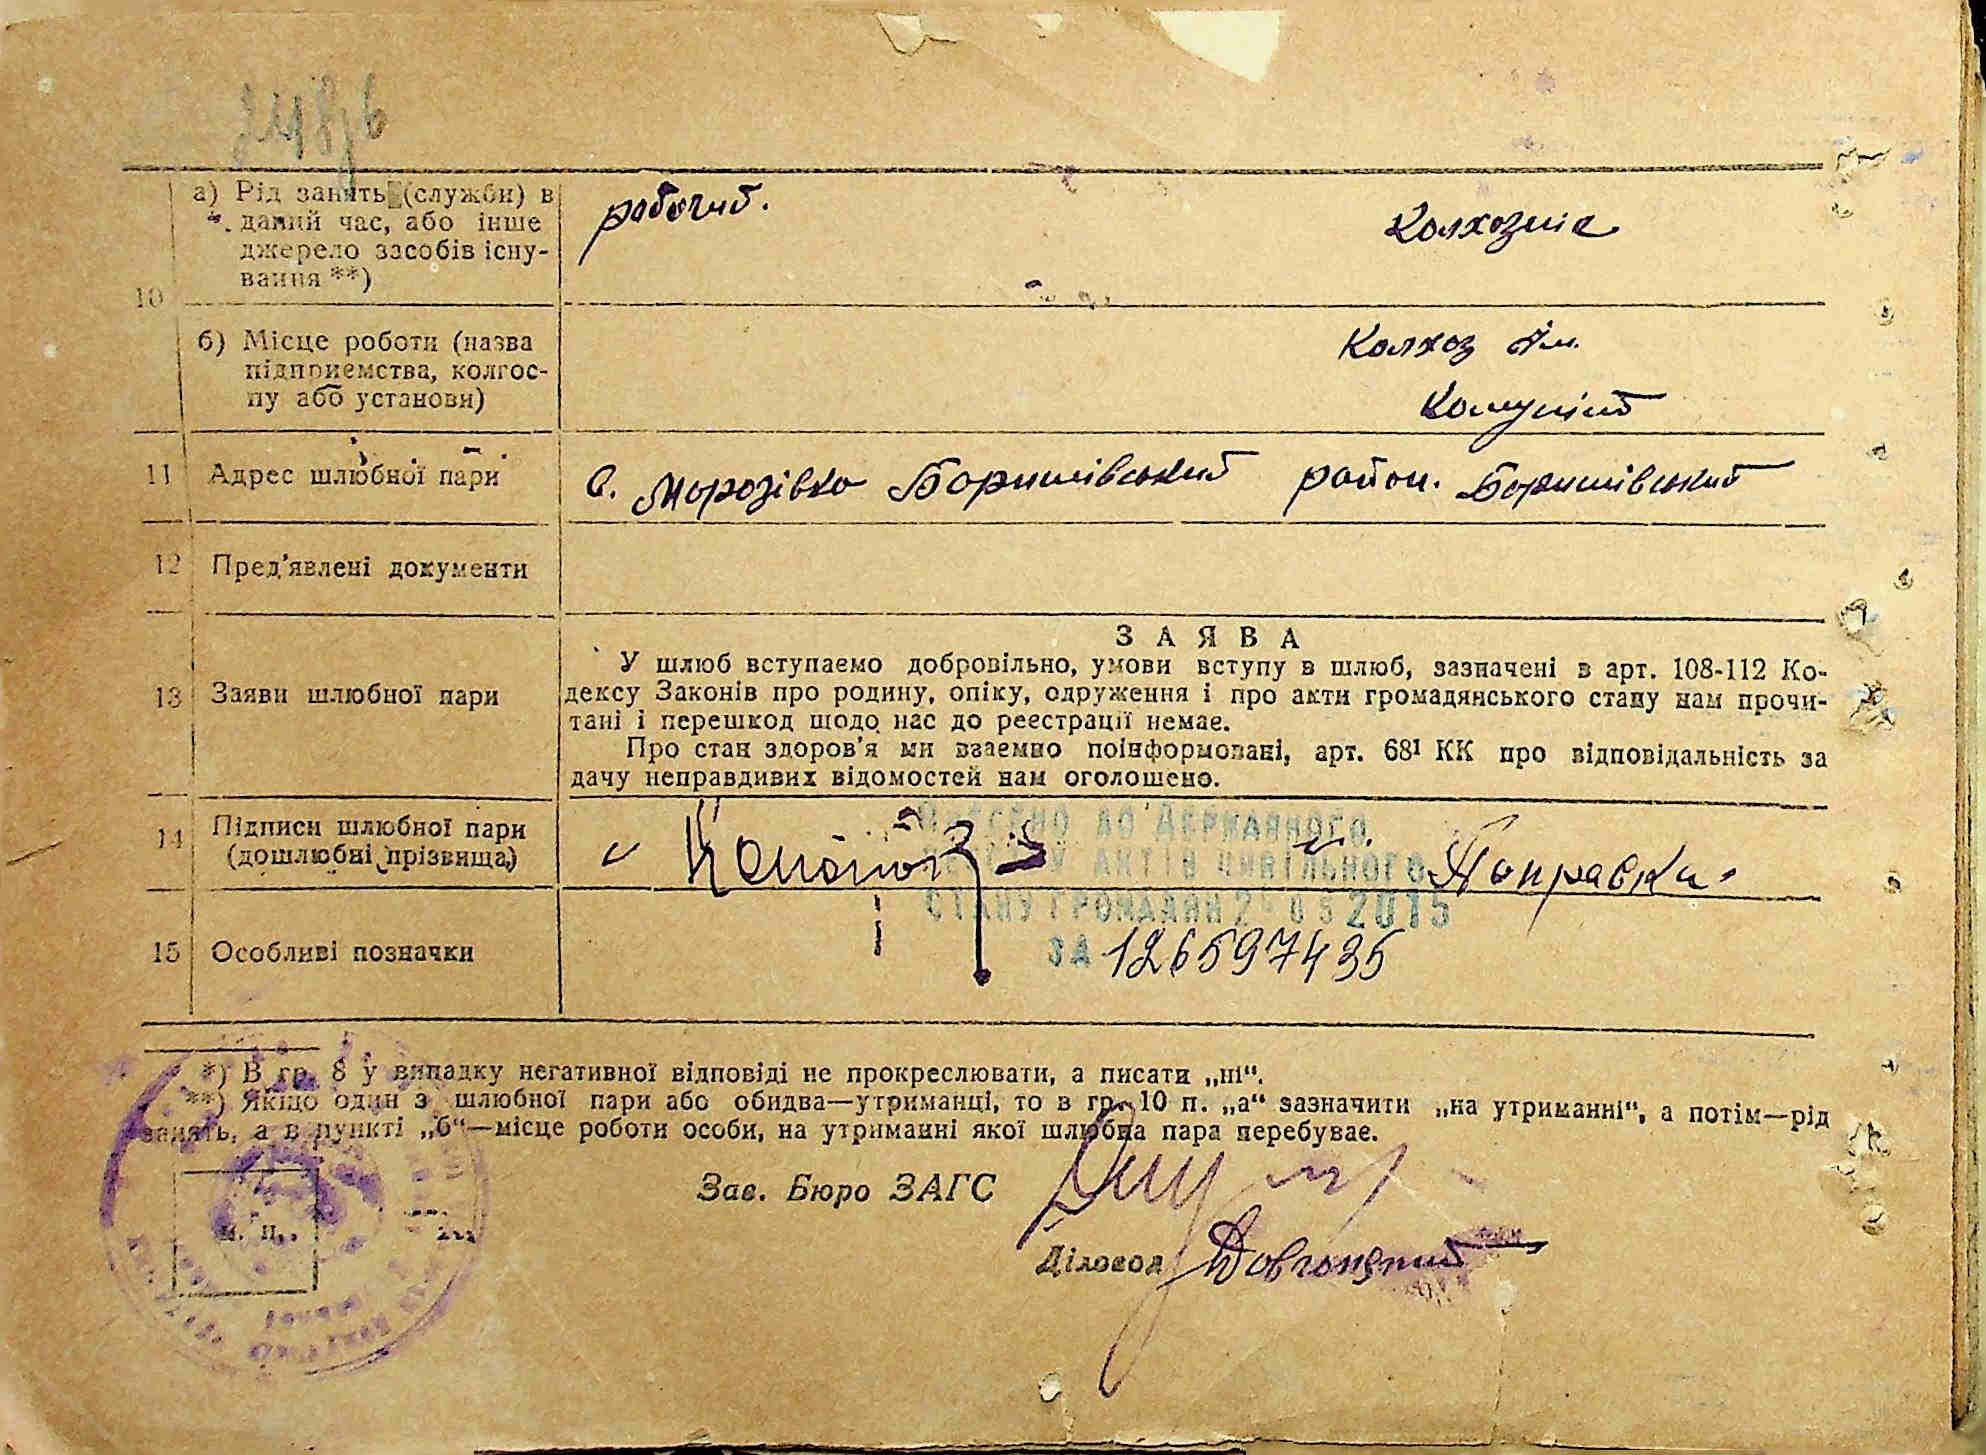 а) Рід занять (службн) в
даний час, або інше
джерело засобів існу-
вання **)
робочий.
Колхозниа
10
б) Місце роботи (назва
підприємства, колгос-
пу або установи)
Колхоз ім.
Комуніст
11 Адрес шлюбної пари
с. Морозівка Баришівський район. Баришівський
12 Пред'явлені документи
13 Заяви шлюбної пари
ЗАЯВА
У шлюб вступаємо добровільно, умови вступу в шлюб, зазначені в арт. 108-112 Ко-
дексу Законів про родину, опіку, одруження і про акти громадянського стану нам прочи-
тані і перешкод щодо нас до реєстрації немає.
Про стан здоров'я ми взаємно поінформовані, арт. 68¹ КК про відповідальність за
дачу неправдивих відомостей нам оголошено.
14 Підписи шлюбної пари
(дошлюбні прізвища)
Поправка
Внесено до Державного
реєстру актів цивільного
стану громадян 2015
за 126597435
15 Особливі позначки
*) В гр. 8 у випадку негативної відповіді не прокреслювати, а писати „ні“.
**) Якщо один з шлюбної пари або обидва—утриманці, то в гр. 10 п. „а“ зазначити „на утриманні“, а потім—рід
занять, а в пункті „б“—місце роботи особи, на утриманні якої шлюбна пара перебуває.
Зав. Бюро ЗАГС
м. п.
Діловод